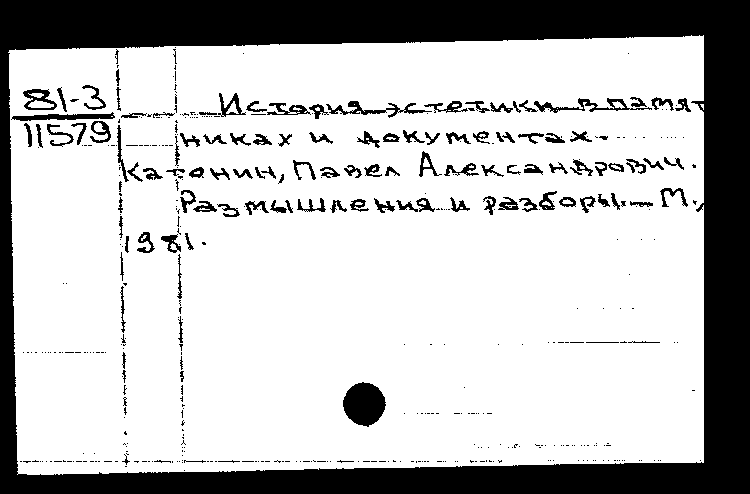 81-3
11579
История эстетики в памят
никах и документах.
Катенин, Павел Александрович.
Размышления и разборы.— М.,
1981.